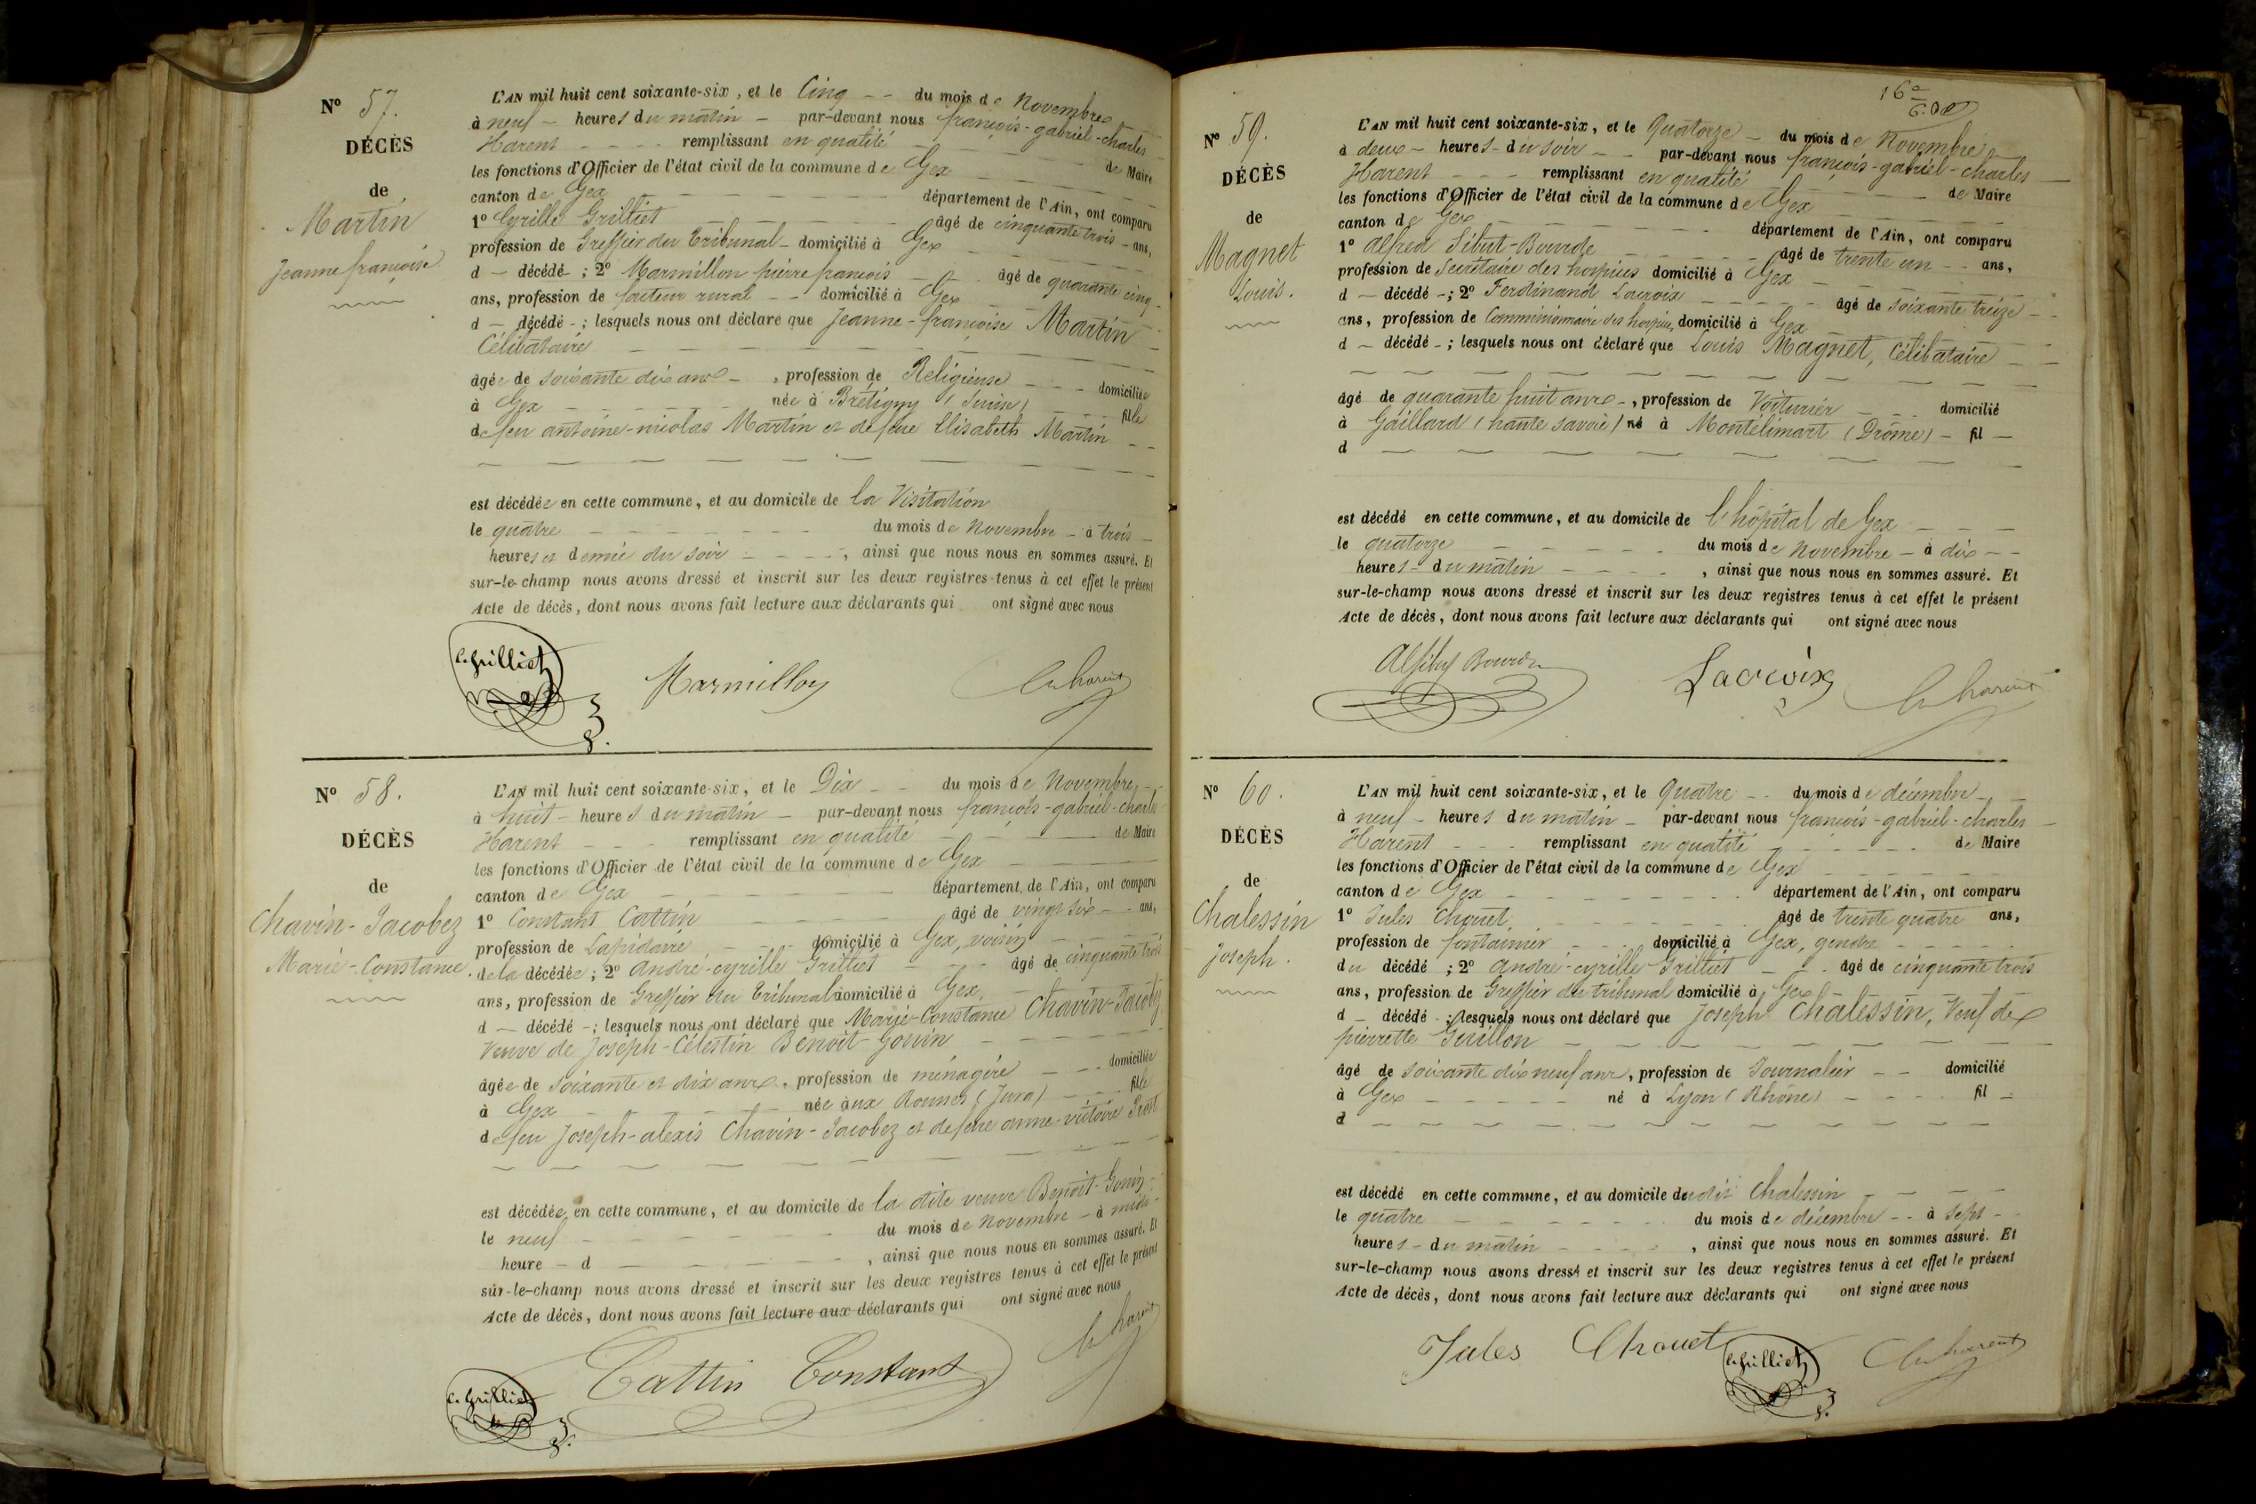 N° 57.
DÉCÈS
de
Martin
Jeanne françoise
L'AN mil huit cent soixante-six, et le Cinq -- du mois de Novembre
à neuf - heures du matin - par-devant nous françois-gabriel-charles
Harent - - - - remplissant en qualité - - - - de Maire
les fonctions d'Officier de l'état civil de la commune de Gex
canton de Gex - - - - département de l'Ain, ont comparu
1° Cyrille Grilliet - - - - âgé de cinquante trois - ans,
profession de Greffier du Tribunal - domicilié à Gex
d - décédé - ; 2° Marmillon pierre françois - - âgé de quarante cinq -
ans, profession de facteur rural - - domicilié à Gex
d - décédé - ; lesquels nous ont déclaré que Jeanne-françoise Martin
Célibataire
âgée de soixante dix ans - , profession de Religieuse - - - domiciliée
à Gex - - - - née à Brétigny (Suisse) - - - fille
de feu antoine-nicolas Martin et de feue Elisabeth Martin
est décédée en cette commune, et au domicile de la Visitation
le quatre - - - - du mois de Novembre - à trois -
heures et demie du soir - - - -, ainsi que nous nous en sommes assuré. Et
sur-le-champ nous avons dressé et inscrit sur les deux registres tenus à cet effet le présent
Acte de décès, dont nous avons fait lecture aux déclarants qui ont signé avec nous
C. Grilliet Marmillon Ch harent
N° 58.
DÉCÈS
de
Chavin-Jacobez
Marie-Constance.
L'AN mil huit cent soixante-six, et le Dix - - du mois de Novembre
à huit - heures du matin - par-devant nous françois-gabriel-charles
Harent - - - remplissant en qualité - - - de Maire
les fonctions d'Officier de l'état civil de la commune de Gex
canton de Gex - - - - département de l'Ain, ont comparu
1° Constant Cattin - - - - âgé de vingt six - - ans,
profession de Lapidaire - - - domicilié à Gex, voisin
de la décédée; 2° André-cyrille Grilliet - - - âgé de cinquante trois
ans, profession de Greffier du Tribunal domicilié à Gex,
d - décédé - ; lesquels nous ont déclaré que Marie-Constance Chavin-Jacobez
Veuve de Joseph-Célestin Benoit-Gonin
âgée de soixante et dix ans, profession de ménagère - - - domiciliée
à Gex - - - - née aux Rousses (Jura) - - - fille
de feu Joseph-alexis Chavin-Jacobez et de feue anne-victoire
est décédée en cette commune, et au domicile de la dite veuve Benoit-Gonin
le neuf - - - - du mois de Novembre - à midi
heure - d - - - -, ainsi que nous nous en sommes assuré. Et
sur-le-champ nous avons dressé et inscrit sur les deux registres tenus à cet effet le présent
Acte de décès, dont nous avons fait lecture aux déclarants qui ont signé avec nous
C. Grilliet Cattin Constant Ch harent
16e
N° 59.
DÉCÈS
de
Magnet
Louis.
L'AN mil huit cent soixante-six, et le Quatorze - du mois de Novembre
à deux - heures - du soir - - par-devant nous françois-gabriel-charles
Harent - - - remplissant en qualité - - - de Maire
les fonctions d'Officier de l'état civil de la commune de Gex
canton de Gex - - - - département de l'Ain, ont comparu
1° Alfred Sibut-Bourde - - - - âgé de trente un - - ans,
profession de Secrétaire des hospices domicilié à Gex
d - décédé - ; 2° Ferdinand Lacroix - - - - âgé de soixante treize - -
ans, profession de Commissionnaire des hospices, domicilié à Gex
d - décédé - ; lesquels nous ont déclaré que Louis Magnet, célibataire
âgé de quarante huit ans - , profession de Voiturier - - - domicilié
à Gaillard (haute savoie) né à Montélimart (Drôme) - fil -
d
est décédé en cette commune, et au domicile de l'hôpital de Gex
le quatorze - - - - du mois de Novembre - à dix - -
heures - du matin - - - -, ainsi que nous nous en sommes assuré. Et
sur-le-champ nous avons dressé et inscrit sur les deux registres tenus à cet effet le présent
Acte de décès, dont nous avons fait lecture aux déclarants qui ont signé avec nous
Al Sibut Bourde Lacroix Ch harent
N° 60.
DÉCÈS
de
Chalessin
Joseph.
L'AN mil huit cent soixante-six, et le Quatre - - du mois de décembre
à neuf - heures du matin - par-devant nous françois-gabriel-charles
Harent - - - remplissant en qualité - - - de Maire
les fonctions d'Officier de l'état civil de la commune de Gex
canton de Gex - - - - département de l'Ain, ont comparu
1° Jules Chouet - - - - âgé de trente quatre ans,
profession de fontainier - - - domicilié à Gex, gendre
du décédé ; 2° André-cyrille Grilliet - - - âgé de cinquante trois
ans, profession de Greffier du tribunal domicilié à Gex
d - décédé - ; lesquels nous ont déclaré que Joseph Chalessin, Veuf de
pierrette Guillon
âgé de soixante dix neuf ans, profession de Journalier - - domicilié
à Gex - - - - né à Lyon (Rhône) - - - - fil -
d
est décédé en cette commune, et au domicile dudit Chalessin
le quatre - - - - du mois de décembre - - à sept -
heures - du matin - - - -, ainsi que nous nous en sommes assuré. Et
sur-le-champ nous avons dressé et inscrit sur les deux registres tenus à cet effet le présent
Acte de décès, dont nous avons fait lecture aux déclarants qui ont signé avec nous
Jules Chouet C. Grilliet Ch harent